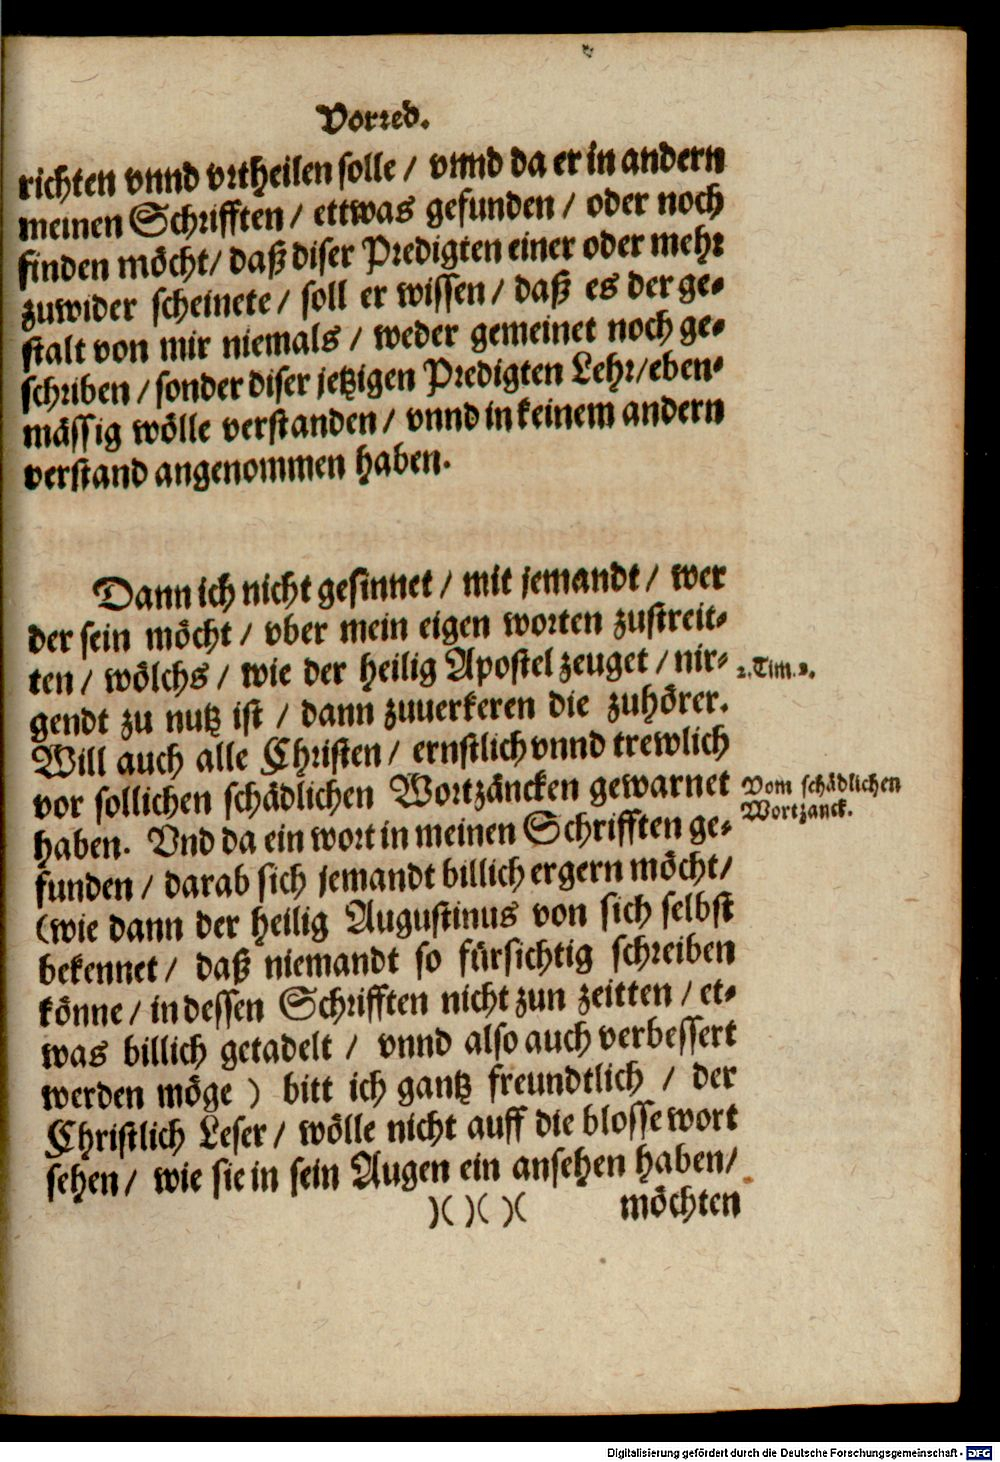 Vorred.
richten vnnd vrtheilen solle / vnnd da er in andern
meinen Schrifften / ettwas gefunden / oder noch
finden möcht / daß diser Predigten einer oder mehr
zuwider scheinete / soll er wissen / daß es der ge-
stalt von mir niemals / weder gemeinet noch ge-
schriben / sonder diser jetzigen Predigten Lehr / eben-
mässig wölle verstanden / vnnd in keinem andern
verstand angenommen haben.
Dann ich nicht gesinnet / mit jemandt / wer
der sein möcht / vber mein eigen worten zustreit-
ten / wölchs / wie der heilig Apostel zeuget / nir-
2. Tim. 2.
gendt zu nutz ist / dann zuuerkeren die zuhörer.
Will auch alle Christen / ernstlich vnnd trewlich
vor sollichen schädlichen Wortzäncken gewarnet
Vom schädlichen
Wortzanck.
haben. Vnd da ein wort in meinen Schrifften ge-
funden / darab sich jemandt billich ergern möcht /
(wie dann der heilig Augustinus von sich selbst
bekennet / daß niemandt so fürsichtig schreiben
könne / in dessen Schrifften nicht zun zeitten / et-
was billich getadelt / vnnd also auch verbessert
werden möge ) bitt ich gantz freundtlich / der
Christlich Leser / wölle nicht auff die blosse wort
sehen / wie sie in sein Augen ein ansehen haben /
)( )( )(
möchten
Digitalisierung gefördert durch die Deutsche Forschungsgemeinschaft - DFG